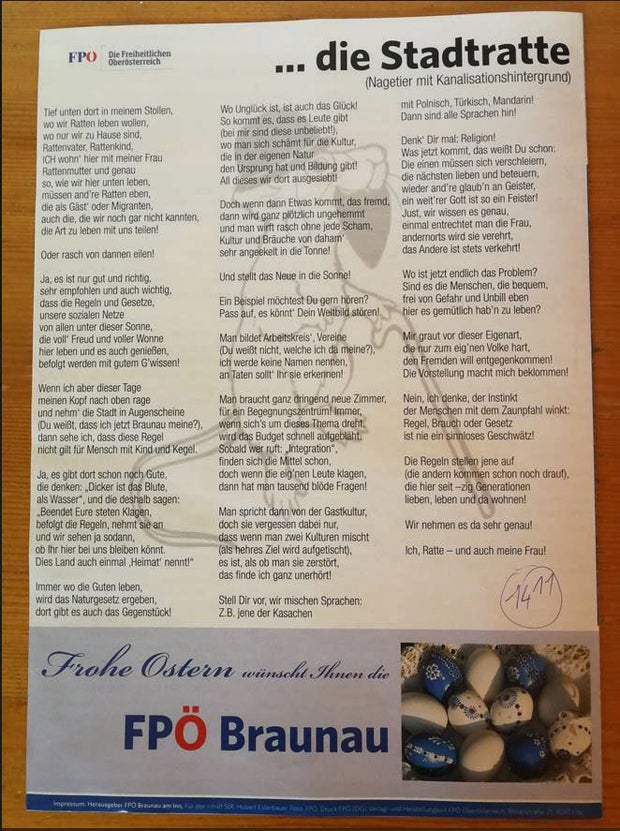 FPÖ
Die Freiheitlichen
Oberösterreich
... die Stadtratte
(Nagetier mit Kanalisationshintergrund)
Tief unten dort in meinem Stollen,
wo wir Ratten leben wollen,
wo nur wir zu Hause sind,
Rattenvater, Rattenkind,
ICH wohn' hier mit meiner Frau
Rattenmutter und genau
so, wie wir hier unten leben,
müssen and're Ratten eben,
die als Gäst' oder Migranten,
auch die, die wir noch gar nicht kannten,
die Art zu leben mit uns teilen!
Oder rasch von dannen eilen!
Ja, es ist nur gut und richtig,
sehr empfohlen und auch wichtig,
dass die Regeln und Gesetze,
unsere sozialen Netze
von allen unter dieser Sonne,
die voll' Freud und voller Wonne
hier leben und es auch genießen,
befolgt werden mit gutem G'wissen!
Wenn ich aber dieser Tage
meinen Kopf nach oben rage
und nehm' die Stadt in Augenscheine
(Du weißt, dass ich jetzt Braunau meine?),
dann sehe ich, dass diese Regel
nicht gilt für Mensch mit Kind und Kegel.
Ja, es gibt dort schon noch Gute,
die denken: „Dicker ist das Blute,
als Wasser“, und die deshalb sagen:
„Beendet Eure steten Klagen,
befolgt die Regeln, nehmt sie an
und wir sehen ja sodann,
ob Ihr hier bei uns bleiben könnt.
Dies Land auch einmal ‚Heimat‘ nennt!“
Immer wo die Guten leben,
wird das Naturgesetz ergeben,
dort gibt es auch das Gegenstück!
Wo Unglück ist, ist auch das Glück!
So kommt es, dass es Leute gibt
(bei mir sind diese unbeliebt!),
wo man sich schämt für die Kultur,
die in der eigenen Natur
den Ursprung hat und Bildung gibt!
All dieses wir dort ausgesiebt!
Doch wenn dann Etwas kommt, das fremd,
dann wird ganz plötzlich ungehemmt
und man wirft rasch ohne jede Scham,
Kultur und Bräuche von daham'
sehr angeekelt in die Tonne!
Und stellt das Neue in die Sonne!
Ein Beispiel möchtest Du gern hören?
Pass auf, es könnt' Dein Weltbild stören!
Man bildet Arbeitskreis', Vereine
(Du weißt nicht, welche ich da meine?),
ich werde keine Namen nennen,
an Taten sollt' Ihr sie erkennen!
Man braucht ganz dringend neue Zimmer,
für ein Begegnungszentrum! Immer,
wenn sich's um dieses Thema dreht,
wird das Budget schnell aufgebläht.
Sobald wer ruft: „Integration“,
finden sich die Mittel schon,
doch wenn die eig'nen Leute klagen,
dann hat man tausend blöde Fragen!
Man spricht dann von der Gastkultur,
doch sie vergessen dabei nur,
dass wenn man zwei Kulturen mischt
(als hehres Ziel wird aufgetischt),
es ist, als ob man sie zerstört,
das finde ich ganz unerhört!
Stell Dir vor, wir mischen Sprachen:
Z.B. jene der Kasachen
mit Polnisch, Türkisch, Mandarin!
Dann sind alle Sprachen hin!
Denk' Dir mal: Religion!
Was jetzt kommt, das weißt Du schon:
Die einen müssen sich verschleiern,
die nächsten lieben und beteuern,
wieder and're glaub'n an Geister,
ein weit'rer Gott ist so ein Feister!
Just, wir wissen es genau,
einmal entrechtet man die Frau,
andernorts wird sie verehrt,
das Andere ist stets verkehrt!
Wo ist jetzt endlich das Problem?
Sind es die Menschen, die bequem,
frei von Gefahr und Unbill eben
hier es gemütlich hab'n zu leben?
Mir graut vor dieser Eigenart,
die nur zum eig'nen Volke hart,
den Fremden will entgegenkommen!
Die Vorstellung macht mich beklommen!
Nein, ich denke, der Instinkt
der Menschen mit dem Zaunpfahl winkt:
Regel, Brauch oder Gesetz
ist nie ein sinnloses Geschwätz!
Die Regeln stellen jene auf
(die andern kommen schon noch drauf),
die hier seit –zig Generationen
lieben, leben und da wohnen!
Wir nehmen es da sehr genau!
Ich, Ratte – und auch meine Frau!
1411
Frohe Ostern wünscht Ihnen die
FPÖ Braunau
Impressum: Herausgeber FPÖ Braunau am Inn, Für den Inhalt